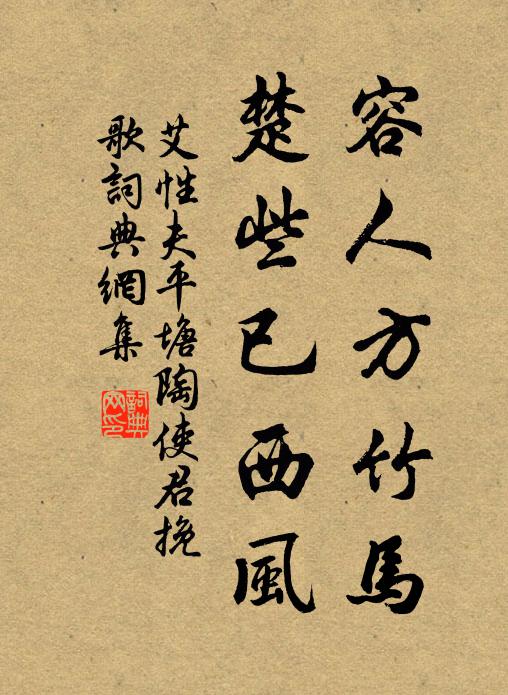 容人方竹馬
楚些已西風
艾性夫平塘陶使君挽
歌詞典網集
詞典網印